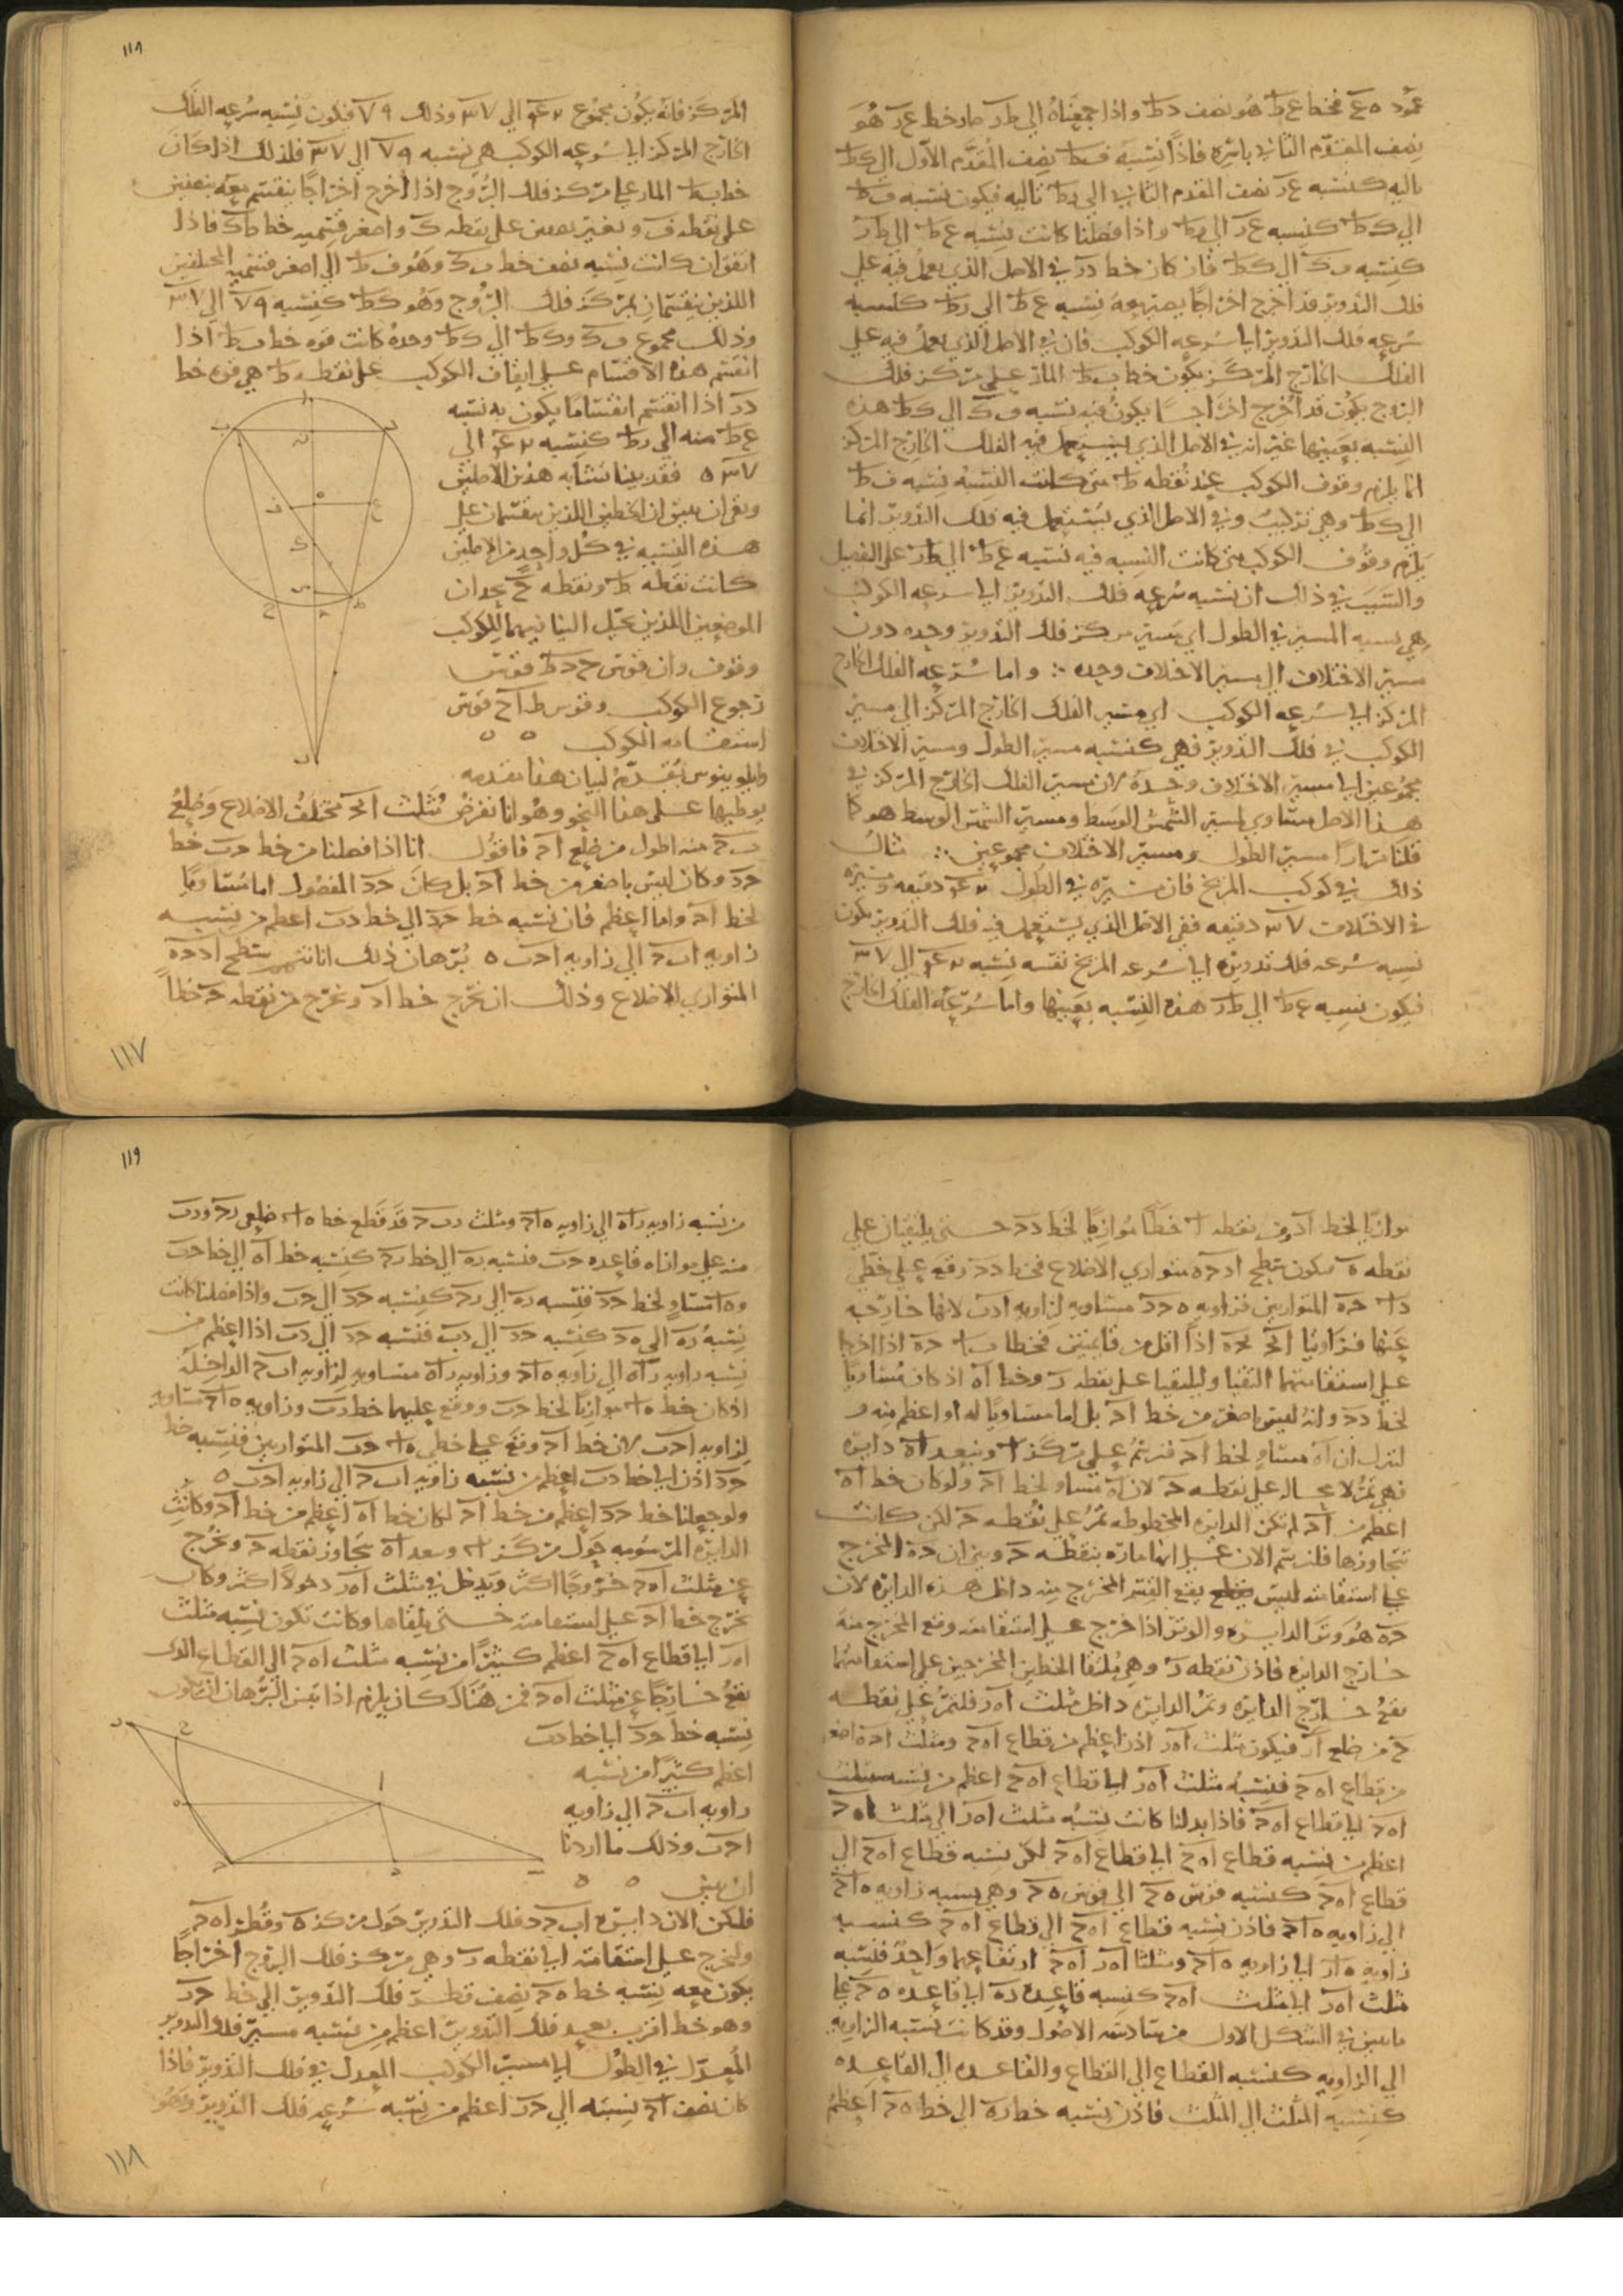 عمود ه ع فخط ع ط هو نصف د ط واذا جمعناه الي ط ر صار خط ع ر هو
نصف المقدم الثاني باسره فاذا نسبة ف ط نصف المقدم الاول الي ك ط
تاليه كنسبه ع ر نصف المقدم الثاني الي ر ط تاليه فيكون نسبه ف ط
الي ك ط كنسبه ع ر الي ر ط واذا فصلنا كانت نسبه ع ط الي ط ر
كنسبه ف ك الي ك ط فان كان خط د ر في الاصل الذي يعمل فيه علي
فلك التدوير قد اخرج اخراجا يصير معه نسبه ع ط الي ر ط كنسبه
سرعه فلك التدوير الي سرعه الكوكب فان في الاصل الذي يعمل فيه علي
الفلك الخارج المركز يكون خط ب ط المار علي مركز فلك
البروج يكون قد اخرج اخراجا يكون فيه نسبه ف ك الي ك ط هذه
النسبه بعينها غير انه في الاصل الذي يستعمل فيه الفلك الخارج المركز
انما يلزم وقوف الكوكب عند نقطه ط متي كانت النسبه نسبه ف ط
الي ك ط وهي تركيب وفي الاصل الذي يستعمل فيه فلك التدوير انما
يلزم وقوف الكوكب متي كانت النسبه فيه نسبه ع ط الي ط ر علي التفصيل
والسبب في ذلك ان نسبه سرعه فلك التدوير الي سرعه الكوكب
هي نسبه المسير في الطول اي مسير مركز فلك التدوير وحده دون
مسير الاختلاف الي مسير الاختلاف وحده ∴ واما سرعه الفلك الخارج
المركز الي سرعه الكوكب اي مسير الفلك الخارج المركز الي مسير
الكوكب في فلك التدوير فهي كنسبه مسير الطول ومسير الاختلاف
مجموعين الي مسير الاختلاف وحده لان مسير الفلك الخارج المركز في
هذا الاصل مساوي لمسير الشمس الوسط ومسير الشمس الوسط هو كما
قلنا مرارا مسير الطول ومسير الاختلاف مجموعين ∴ مثال
ذلك في كوكب المريخ فان مسيره في الطول دقيقه ومسيره
في الاختلاف دقيقه ففي الاصل الذي يستعمل فيه فلك التدوير يكون
نسبه سرعه فلك تدويره الي سرعه المريخ نفسه نسبه
فيكون نسبه ع ط الي ط ر هذه النسبه بعينها واما سرعه الفلك الخارج
١١٨
المركز فانه يكون مجموع الي وذلك فيكون نسبه سرعه الفلك
الخارج المركز الي سرعه الكوكب هي نسبه الي فلذلك اذا كان
خط ب ط المار علي مركز فلك البروج اذا اخرج اخراجا ينقسم معه بنصفين
علي نقطه ف وبغير نصفين علي نقطه ك واصغر قسميه خط ط ك فاذا
اتفق ان كانت نسبه نصف خط ب ك وهو ف ط الي اصغر قسميه المختلفين
اللذين ينقسمان بمركز فلك البروج وهو ك ط كنسبه الي
وذلك مجموع ف ك و ك ط الي ك ط وحده كانت قوه خط ب ط اذا
انقسم هذه الاقسام علي ايقاف الكوكب علي نقطه ط هي قوه خط
د ر اذا انقسم انقساما يكون به نسبه
ع ط منه الي ر ط كنسبه الي
ه فقد بينا تشابه هذين الاصلين
وبقي ان نبين ان الخطين اللذين ينقسمان علي
هذه النسبه في كل واحد من الاصلين
كانت نقطه ط ونقطه ح يحدان
الموضعين اللذين يخيل الينا فيهما للكوكب
وقوف وان قوس ح د ط قوس
رجوع الكوكب وقوس ط ا ح قوس
استقامه الكوكب
وابلونيوس يقدم لبيان هذا مقدمه
يوطيها علي هذا النحو وهو انا نفرض مثلث ا ب ح مختلف الاضلاع وضلع
ب ح منه اطول من ضلع ا ح فاقول انا اذا فصلنا من خط ح ب خط
ح د وكان ليس باصغر من خط ا ح بل كان ح د المفصول اما مساويا
لخط ا ح واما اعظم فان نسبه خط ح د الي خط د ب اعظم من نسبه
زاويه ا ب ح الي زاويه ا ح ب ه برهان ذلك انا نتمم سطح ا د ح ه
المتوازي الاضلاع وذلك ان نخرج خط ا د ونخرج من نقطه ح خطا
١١٧
موازيا لخط ا د ومن نقطه ا خطا موازيا لخط د ح حتي يلتقيان علي
نقطه ه فيكون سطح ا د ح ه متوازي الاضلاع فخط د ح وقع علي خطي
د ا ح ه المتوازيين فزاويه ه ح د مساويه لزاويه ا د ب لانها خارجه
علي استقامتهما التقيا وليلتقيا علي نقطه ر وخط ا ه اذ كان مساويا
لخط د ح وانه ليس باصغر من خط ا ح بل اما مساويا له او اعظم منه
لننزل ان ا ه مساو لخط ا ح فنرسم علي مركز ا وببعد ا ه دايره
فهي تمر لا محاله علي نقطه ح لان ا ه مساو لخط ا ح ولو كان خط ا ه
اعظم من ا ح لم تكن الدايره المخطوطه تمر علي نقطه ح لكن كانت
تتجاوزها فلنرسم الان علي انها ماره بنقطه ح وبين ان ح ه المخرج
علي استقامته ليس يقع القسم المخرج منه داخل هذه الدايره لان
ح ه هو وتر الدايره والوتر اذا خرج علي استقامته وقع المخرج منه
خارج الدايره فاذن نقطه ر وهي ملتقا الخطين المخرجين علي استقامتهما
تقع خارج الدايره وتمر الدايره داخل مثلث ا ه ر فلتمر علي نقطه
ح من ضلع ا ر فيكون مثلث ا ه ر اذن اعظم من قطاع ا ه ح ومثلث ا ح ه اصغر
من قطاع ا ه ح فنسبه مثلث ا ه ر الي قطاع ا ه ح اعظم من نسبه مثلث
ا ه ح الي قطاع ا ه ح فاذا بدلنا كانت نسبه مثلث ا ه ر الي مثلث ا ه ح
اعظم من نسبه قطاع ا ه ح الي قطاع ا ه ح لكن نسبه قطاع ا ه ح الي
قطاع ا ه ح كنسبه قوس ه ح الي قوس ه ح وهي نسبه زاويه ه ا ح
الي زاويه ه ا ح فاذن نسبه قطاع ا ه ح الي قطاع ا ه ح كنسبه
زاويه ه ا ر الي زاويه ه ا ح ومثلثا ا ه ر ا ه ح ارتفاعهما واحد فنسبه
مثلث ا ه ر الي مثلث ا ه ح كنسبه قاعده ر ه الي قاعده ه ح علي
ما بين في الشكل الاول من سادسه الاصول وقد كانت نسبه الزاويه
الي الزاويه كنسبه القطاع الي القطاع والقاعده الي القاعده
كنسبه المثلث الي المثلث فاذن نسبه خط ر ه الي خط ه ح اعظم
١١٩
من نسبه زاويه ر ا ه الي زاويه ه ا ح ومثلث ر ب ح قد قطع خط ه ا ضلعي ر ح و ر ب
منه علي موازاه قاعده ح ب فنسبه ر ه الي خط ر ح كنسبه خط ا ه الي خط ح ب
و ه ا مساو لخط ح د فنسبه ر ه الي ر ح كنسبه ح د الي ح ب واذا فصلنا كانت
نسبه ر ه الي ه ح كنسبه ح د الي د ب فنسبه ح د الي د ب اذا اعظم من
نسبه زاويه ر ا ه الي زاويه ه ا ح وزاويه ر ا ه مساويه لزاويه ا ب ح الداخله
اذ كان خط ه ا موازيا لخط ح ب ووقع عليهما خط ر ب وزاويه ه ا ح مساويه
لزاويه ا ح ب لان خط ا ح وقع علي خطي ه ا ح ب المتوازيين فنسبه خط
ح د اذن الي خط د ب اعظم من نسبه زاويه ا ب ح الي زاويه ا ح ب ه
ولو جعلنا خط ح د اعظم من خط ا ح لكان خط ا ه اعظم من خط ا ح وكانت
الدايره المرسومه حول مركز ا وببعد ا ه تجاوز نقطه ح وتخرج
عن مثلث ا ه ح خروجا اكثر ويدخل في مثلث ا ه ر دخولا اكثر وكان
يخرج خط ا ح علي استقامته حتي يلقاها وكانت تكون نسبه مثلث
ا ه ر الي قطاع ا ه ح اعظم كثيرا من نسبه مثلث ا ه ح الي القطاع الذي
يقع خارجا عن مثلث ا ه ح فمن هناك كان يلزم اذا تبين البرهان ان تكون
نسبه خط ح د الي خط د ب
اعظم كثيرا من نسبه
زاويه ا ب ح الي زاويه
ا ح ب وذلك ما اردنا
ان نبين
فلتكن الان دايره ا ب ح د فلك التدوير حول مركز ه وقطره ا ه ح
وليخرج علي استقامته الي نقطه ر وهي مركز فلك البروج اخراجا
يكون معه نسبه خط ه ح نصف قطر فلك التدوير الي خط ح ر
وهو خط اقرب بعد فلك التدوير اعظم من نسبه مسير فلك التدوير
المعدل في الطول الي مسير الكوكب المعدل في فلك التدوير فاذا
كان نصف ا ح نسبته الي ح ر اعظم من نسبه سرعه فلك التدوير وهو
١١٨